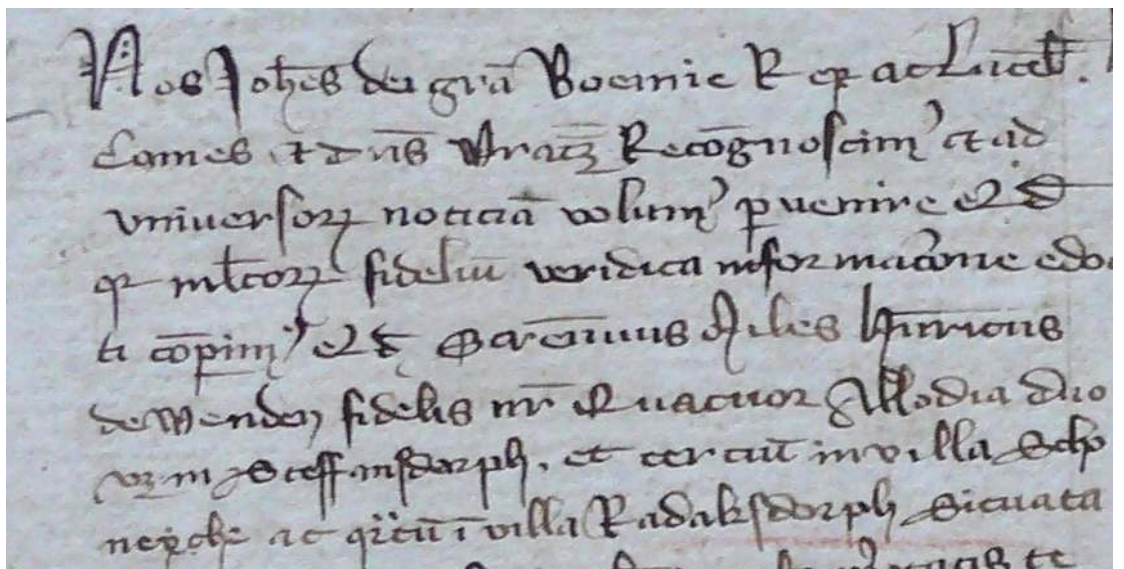 Nos Joh̄es dei gr̄a Boemie Rex ac Luceb̄.
Comes et dn̄s Wrat̄ꝫ Recōgnoscimꝰ et ad
vniuersorꝫ noticiā volumꝰ ꝑuenire
ml̄torꝫ fideliū veridica informac̄one edo
cti cōpimꝰ miles
de Wenden fidelis nr̄ Quatuor Allodia duo
in Steffansdorph. et terciū in villa Scho
ac qr̄tū ī villa Radaksdorph Situata